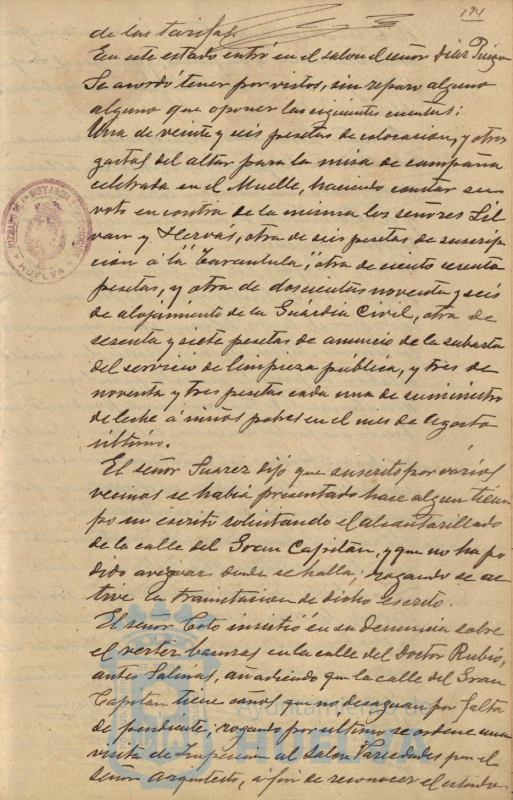 174
de las tarifas.
En este estado entró en el salon el señor Diaz
Se acordó tener por vistos, sin reparo alguno
alguno que oponer las siguientes cuentas:
Una de veinte y seis pesetas de colocacion, y otros
gastos del altar para la misa de campaña
celebrada en el Muelle, haciendo constar su
voto en contra de la misma los señores
y Hervás, otra de seis pesetas de suscrip
cion á la "Tarantula", otra de ciento
pesetas, y otra de doscientas noventa y seis
de alojamiento de la Guardia Civil, otra de
sesenta y siete pesetas de anuncio de la subasta
del servicio de limpieza pública, y tres de
noventa y tres pesetas cada una de suministro
de leche á niños pobres en el mes de Agosto
último.
El señor Suarez dijo que suscrito por varios
vecinos se habia presentado hace algun tiem
po un escrito solicitando el alcantarillado
de la calle del Gran Capitan, y que no ha po
dido averiguar donde se halla, rogando se ac
tive la tramitacion de dicho escrito.
El señor Coto insistió en su denuncia sobre
el verter basuras en la calle del Doctor Rubio,
antes Salinas, añadiendo que la calle del Gran
Capitan tiene caños que no desaguan por falta
de pendiente; rogando por ultimo se ordene una
visita de inspeccion al Salon Variedades por el
señor Arquitecto, á fin de reconocer el estado
HUELVA
Ayuntamiento de
HUELVA